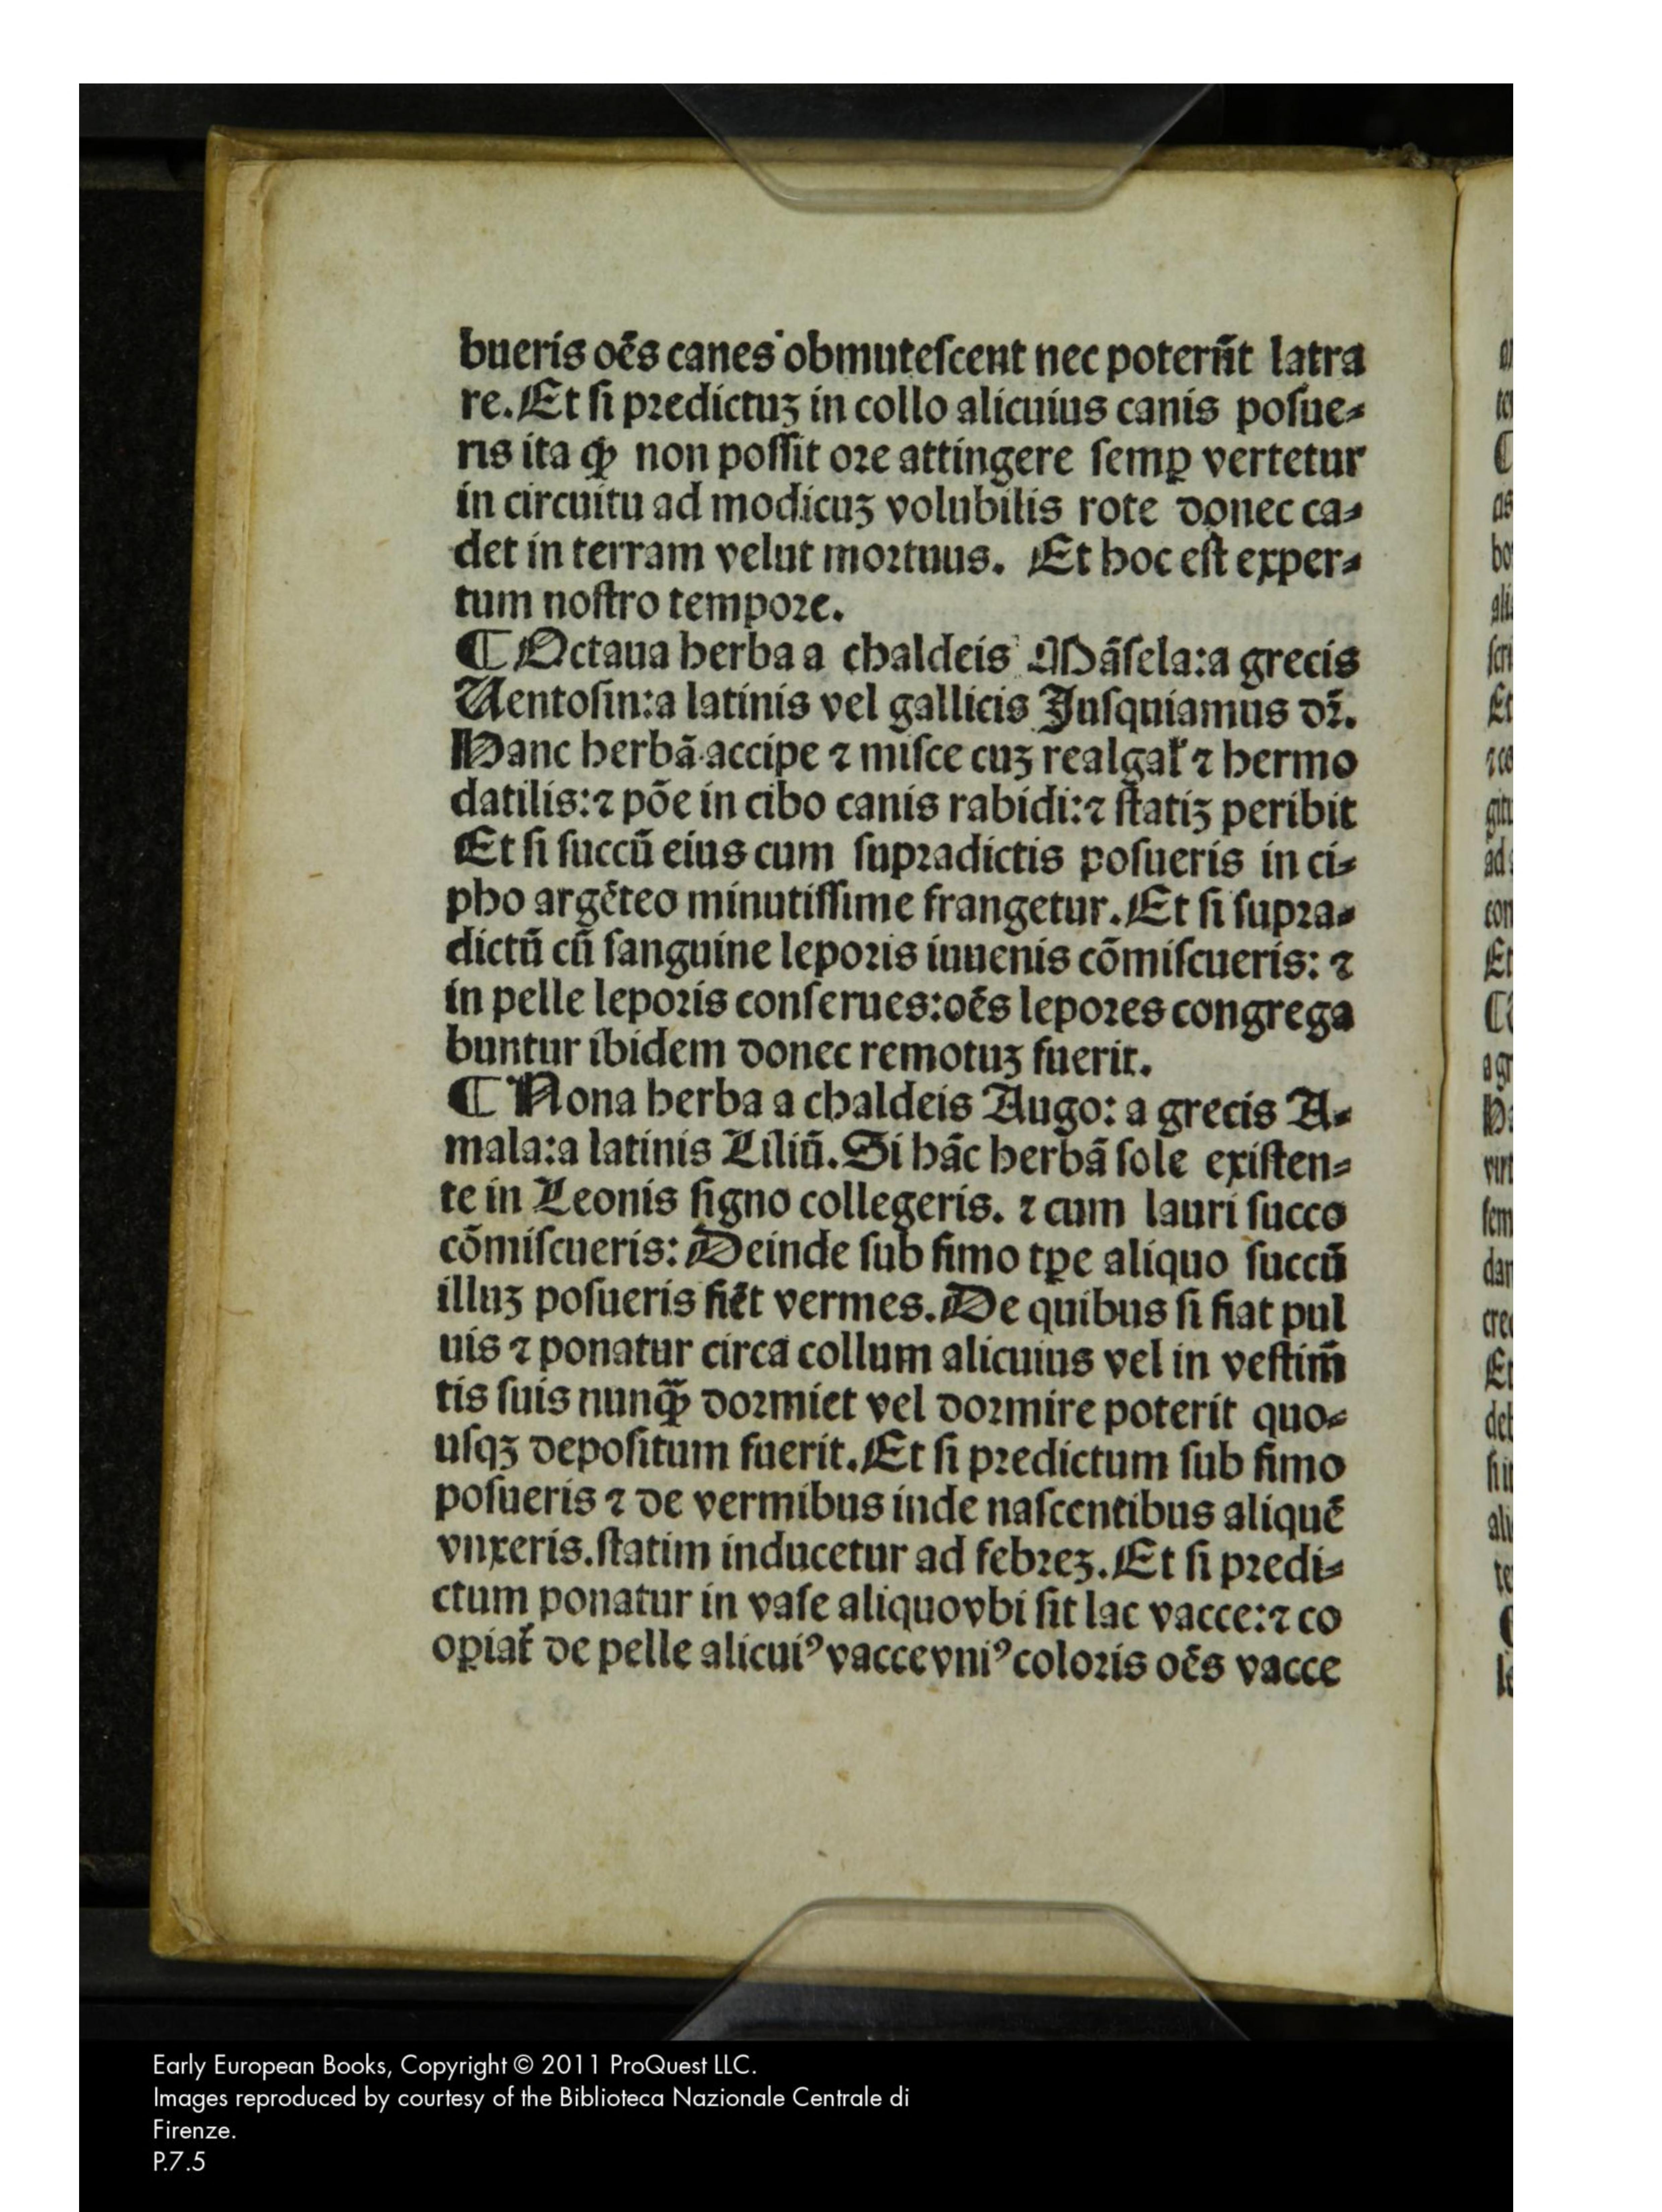 bueris oēs canes obmuteſcent nec poterūt latra
re. Et ſi predictuꝫ in collo alicuius canis poſue⸗
ris ita ꝙ non poſſit ore attingere ſemꝑ vertetur
in circuitu ad modicuꝫ volubilis rote donec ca⸗
det in terram velut mortuus. Et hoc eſt exper⸗
tum noſtro tempore.
¶ Octaua herba a chaldeis Māſela:a grecis
Uentoſin:a latinis vel gallicis Juſquiamus dr̄.
Hanc herbā accipe ⁊ miſce cuꝫ realgar̄ ⁊ hermo
datilis:⁊ pōe in cibo canis rabidi:⁊ ſtatiꝫ peribit
Et ſi ſuccū eius cum ſupradictis poſueris in ci⸗
pho argēteo minutiſſime frangetur. Et ſi ſupra⸗
dictū cū ſanguine leporis iuuenis cōmiſcueris: ⁊
in pelle leporis conſerues:oēs lepores congrega
buntur ibidem donec remotuꝫ fuerit.
¶ Nona herba a chaldeis Augo: a grecis A⸗
mala:a latinis Liliū. Si hāc herbā ſole exiſten⸗
te in Leonis ſigno collegeris. ⁊ cum lauri ſucco
cōmiſcueris: Deinde ſub fimo tꝑe aliquo ſuccū
illuꝫ poſueris fiēt vermes. De quibus ſi fiat pul
uis ⁊ ponatur circa collum alicuius vel in veſtim̄
tis ſuis nunꝙ̄ dormiet vel dormire poterit quo⸗
uſqꝫ depoſitum fuerit. Et ſi predictum ſub fimo
poſueris ⁊ de vermibus inde naſcentibus aliquē
vnxeris.ſtatim inducetur ad febreꝫ. Et ſi predi⸗
ctum ponatur in vaſe aliquo vbi ſit lac vacce:⁊ co
oꝑiat̄ de pelle alicuiꝰ vacce vniꝰ coloris oēs vacce
Early European Books, Copyright © 2011 ProQuest LLC.
Images reproduced by courtesy of the Biblioteca Nazionale Centrale di
Firenze.
P.7.5